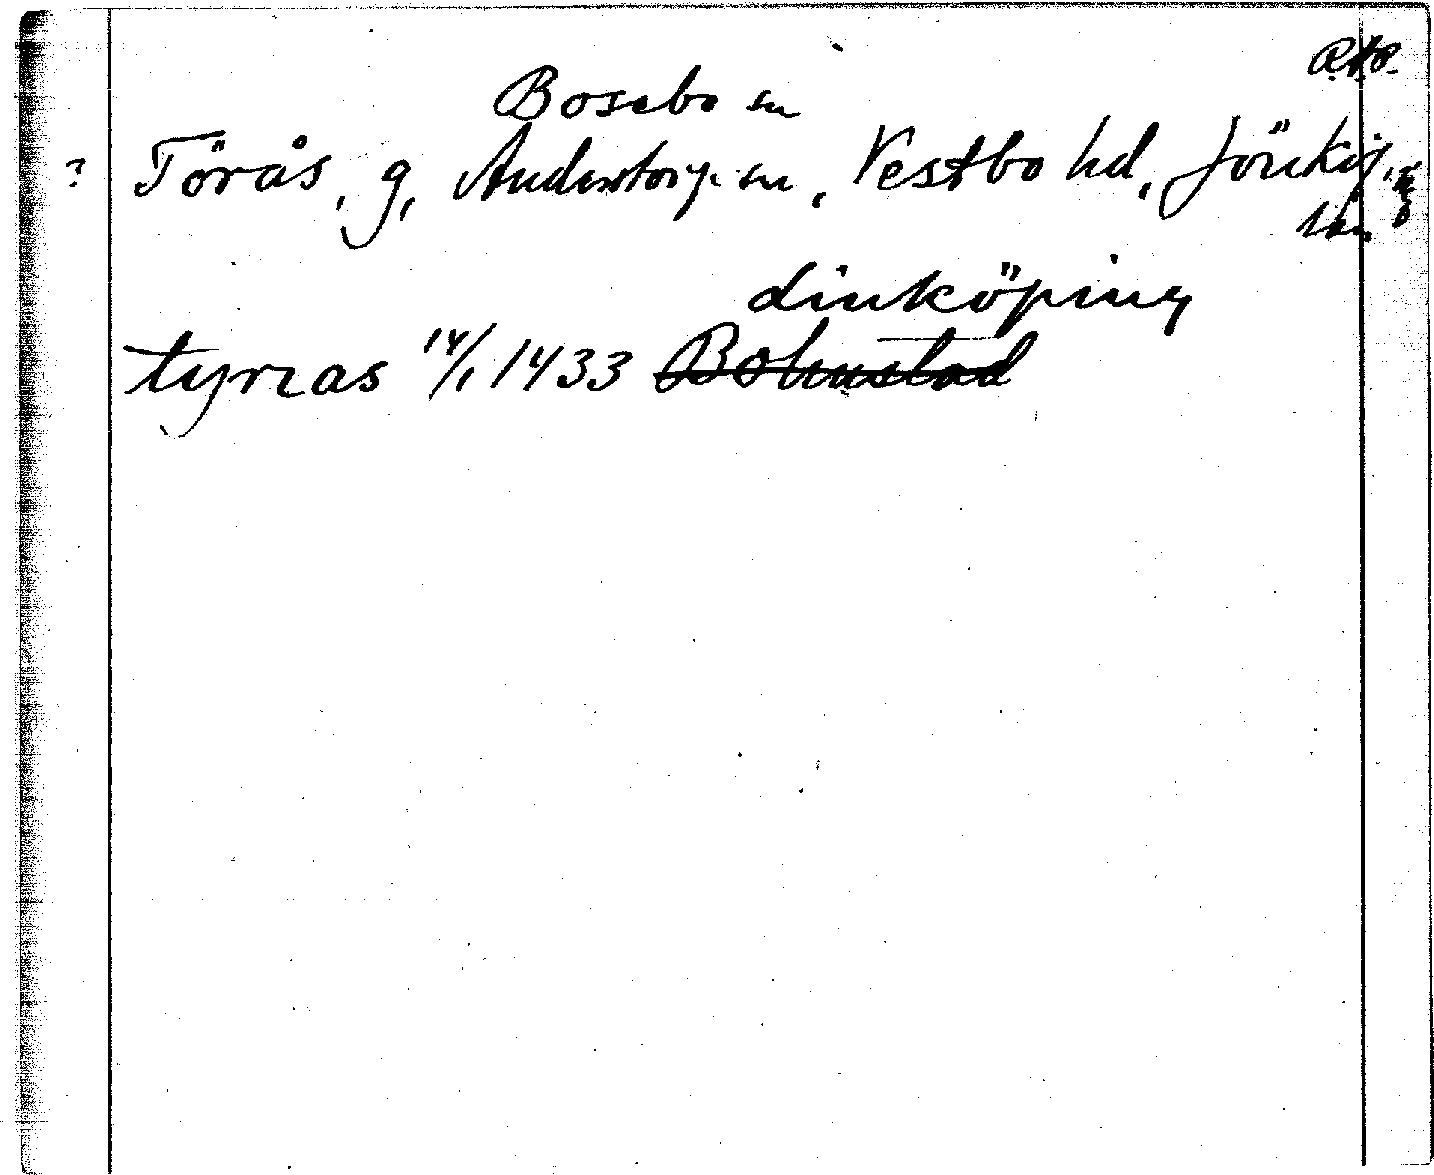 Bosebo sn
? Törås, g, Anderstorps sn, Vestbo hd, Jönköp.
län
Linköping
tyrzas 14/1 1433 Bohustad